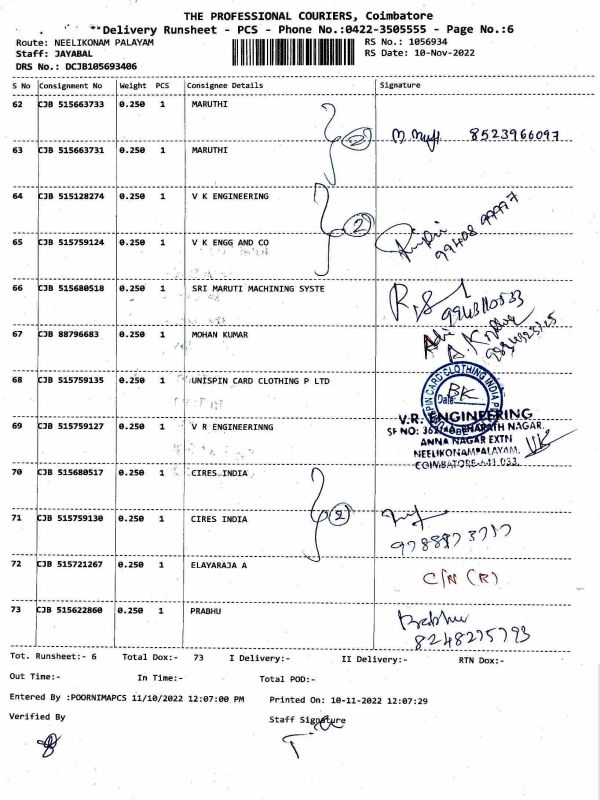 THE PROFESSIONAL COURIERS, Coimbatore
**Delivery Runsheet - PCS - Phone No.:0422-3505555 - Page No.:6
Route: NEELIKONAM PALAYAM
RS No.: 1056934
Staff: JAYABAL
RS Date: 10-Nov-2022
DRS No.: DCJB105693406
S No Consignment No Weight PCS Consignee Details Signature
62 CJB 515663733 0.250 1 MARUTHI
8523966097
63 CJB 515663731 0.250 1 MARUTHI
2
64 CJB 515128274 0.250 1 V K ENGINEERING
2
65 CJB 515759124 0.250 1 V K ENGG AND CO
66 CJB 515680518 0.250 1 SRI MARUTI MACHINING SYSTE
67 CJB 88796683 0.250 1 MOHAN KUMAR
68 CJB 515759135 0.250 1 UNISPIN CARD CLOTHING P LTD
BK
Date
V.R. ENGINEERING
69 CJB 515759127 0.250 1 V R ENGINEERINNG
ANNA NAGAR EXTN
NEELIKONAMPALAYAM,
COIMBATORE-641 033.
70 CJB 515680517 0.250 1 CIRES INDIA
71 CJB 515759130 0.250 1 CIRES INDIA
2
72 CJB 515721267 0.250 1 ELAYARAJA A
C/N (R)
73 CJB 515622860 0.250 1 PRABHU
Prabhu
8248275793
Tot. Runsheet:- 6 Total Dox:- 73 I Delivery:- II Delivery:- RTN Dox:-
Out Time:- In Time:- Total POD:-
Entered By :POORNIMAPCS 11/10/2022 12:07:00 PM Printed On: 10-11-2022 12:07:29
Verified By Staff Signature